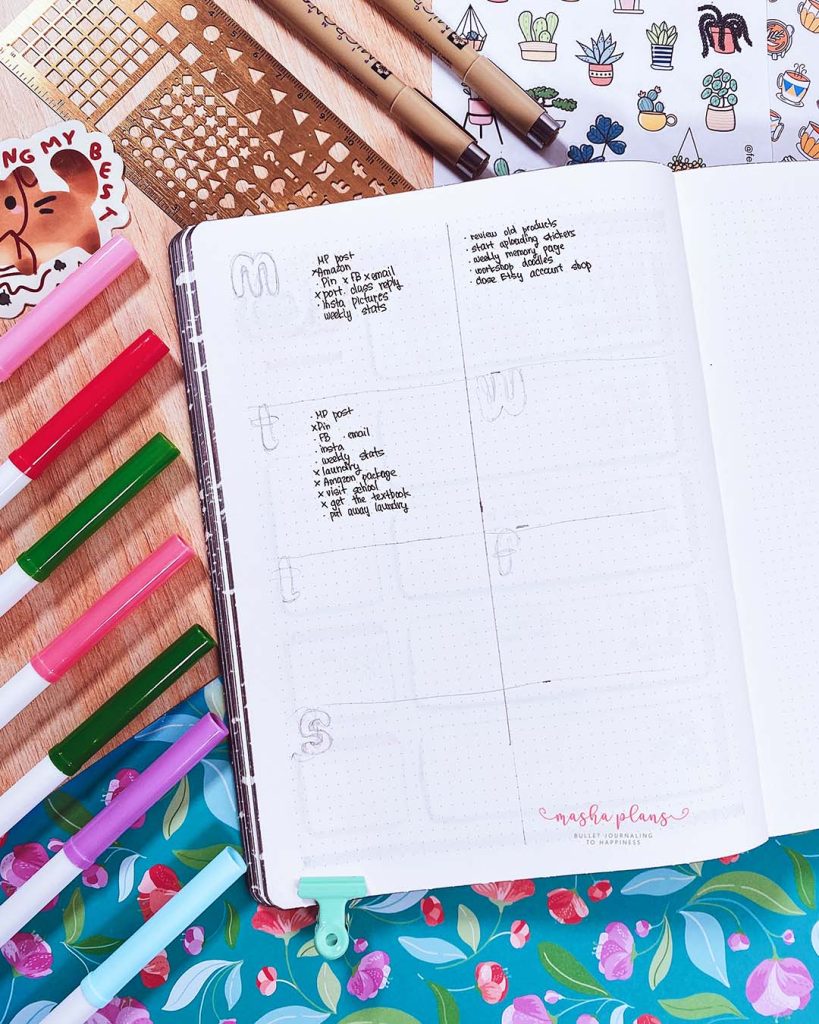 NG MY BEST
M
MP post
x Amazon
· Pin x FB x email
x port. class reply
· Insta pictures
weekly stats
· review old products
· start aploading stickers
· weekly memory page
· workshop doodles
· close Etsy account shop
t
· MP post
x Pin
· FB · email
· insta
· weekly stats
x laundry
x Amazon package
x visit school
x get the textbook
· put away laundry
W
t
f
S
masha plans
BULLET JOURNALING
TO HAPPINESS